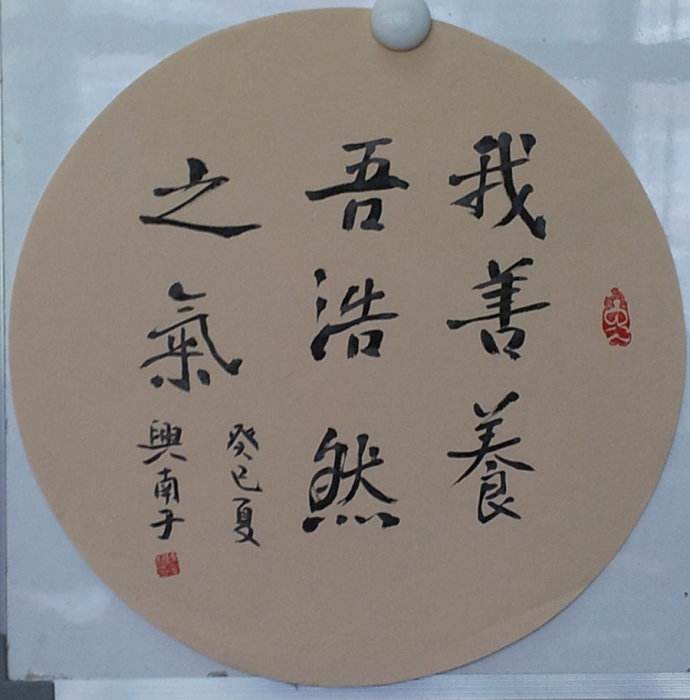 我善養
吾浩然
之氣
癸巳夏
興南子